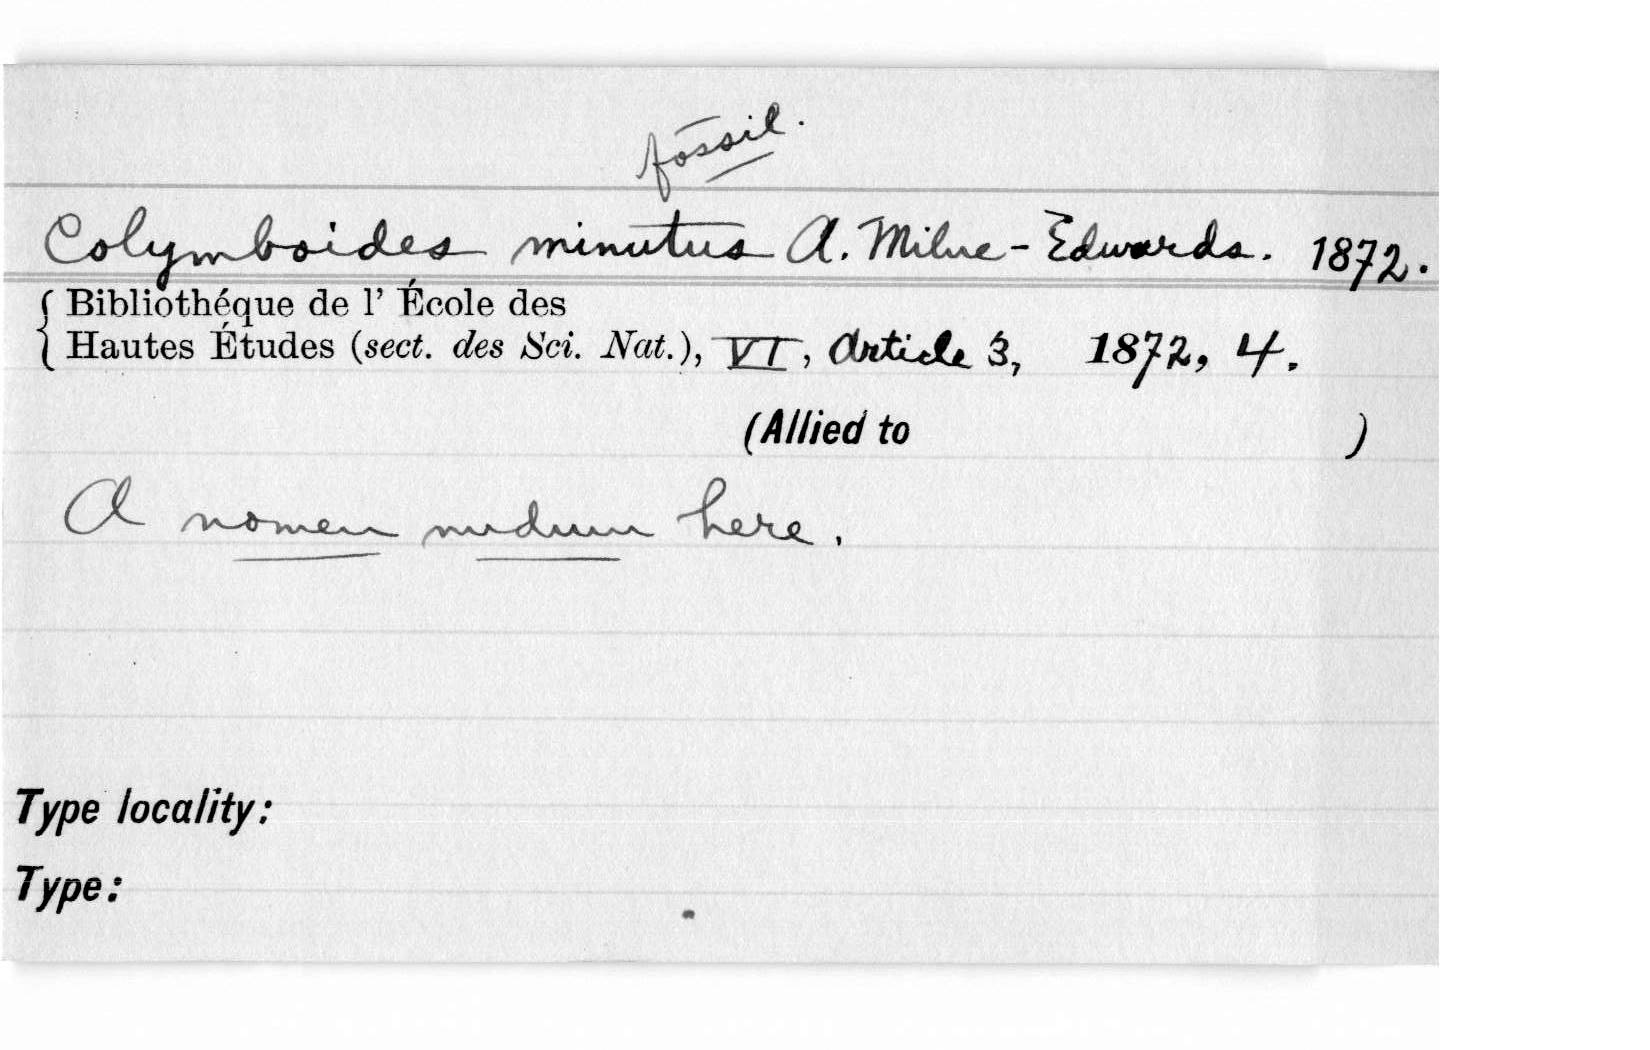 fossil.
Colymboides minutus A. Milne-Edwards. 1872.
Bibliothéque de l' École des
Hautes Études (sect. des Sci. Nat.), VI, Article 3, 1872, 4.
(Allied to )
A nomen nudum here.
Type locality:
Type: